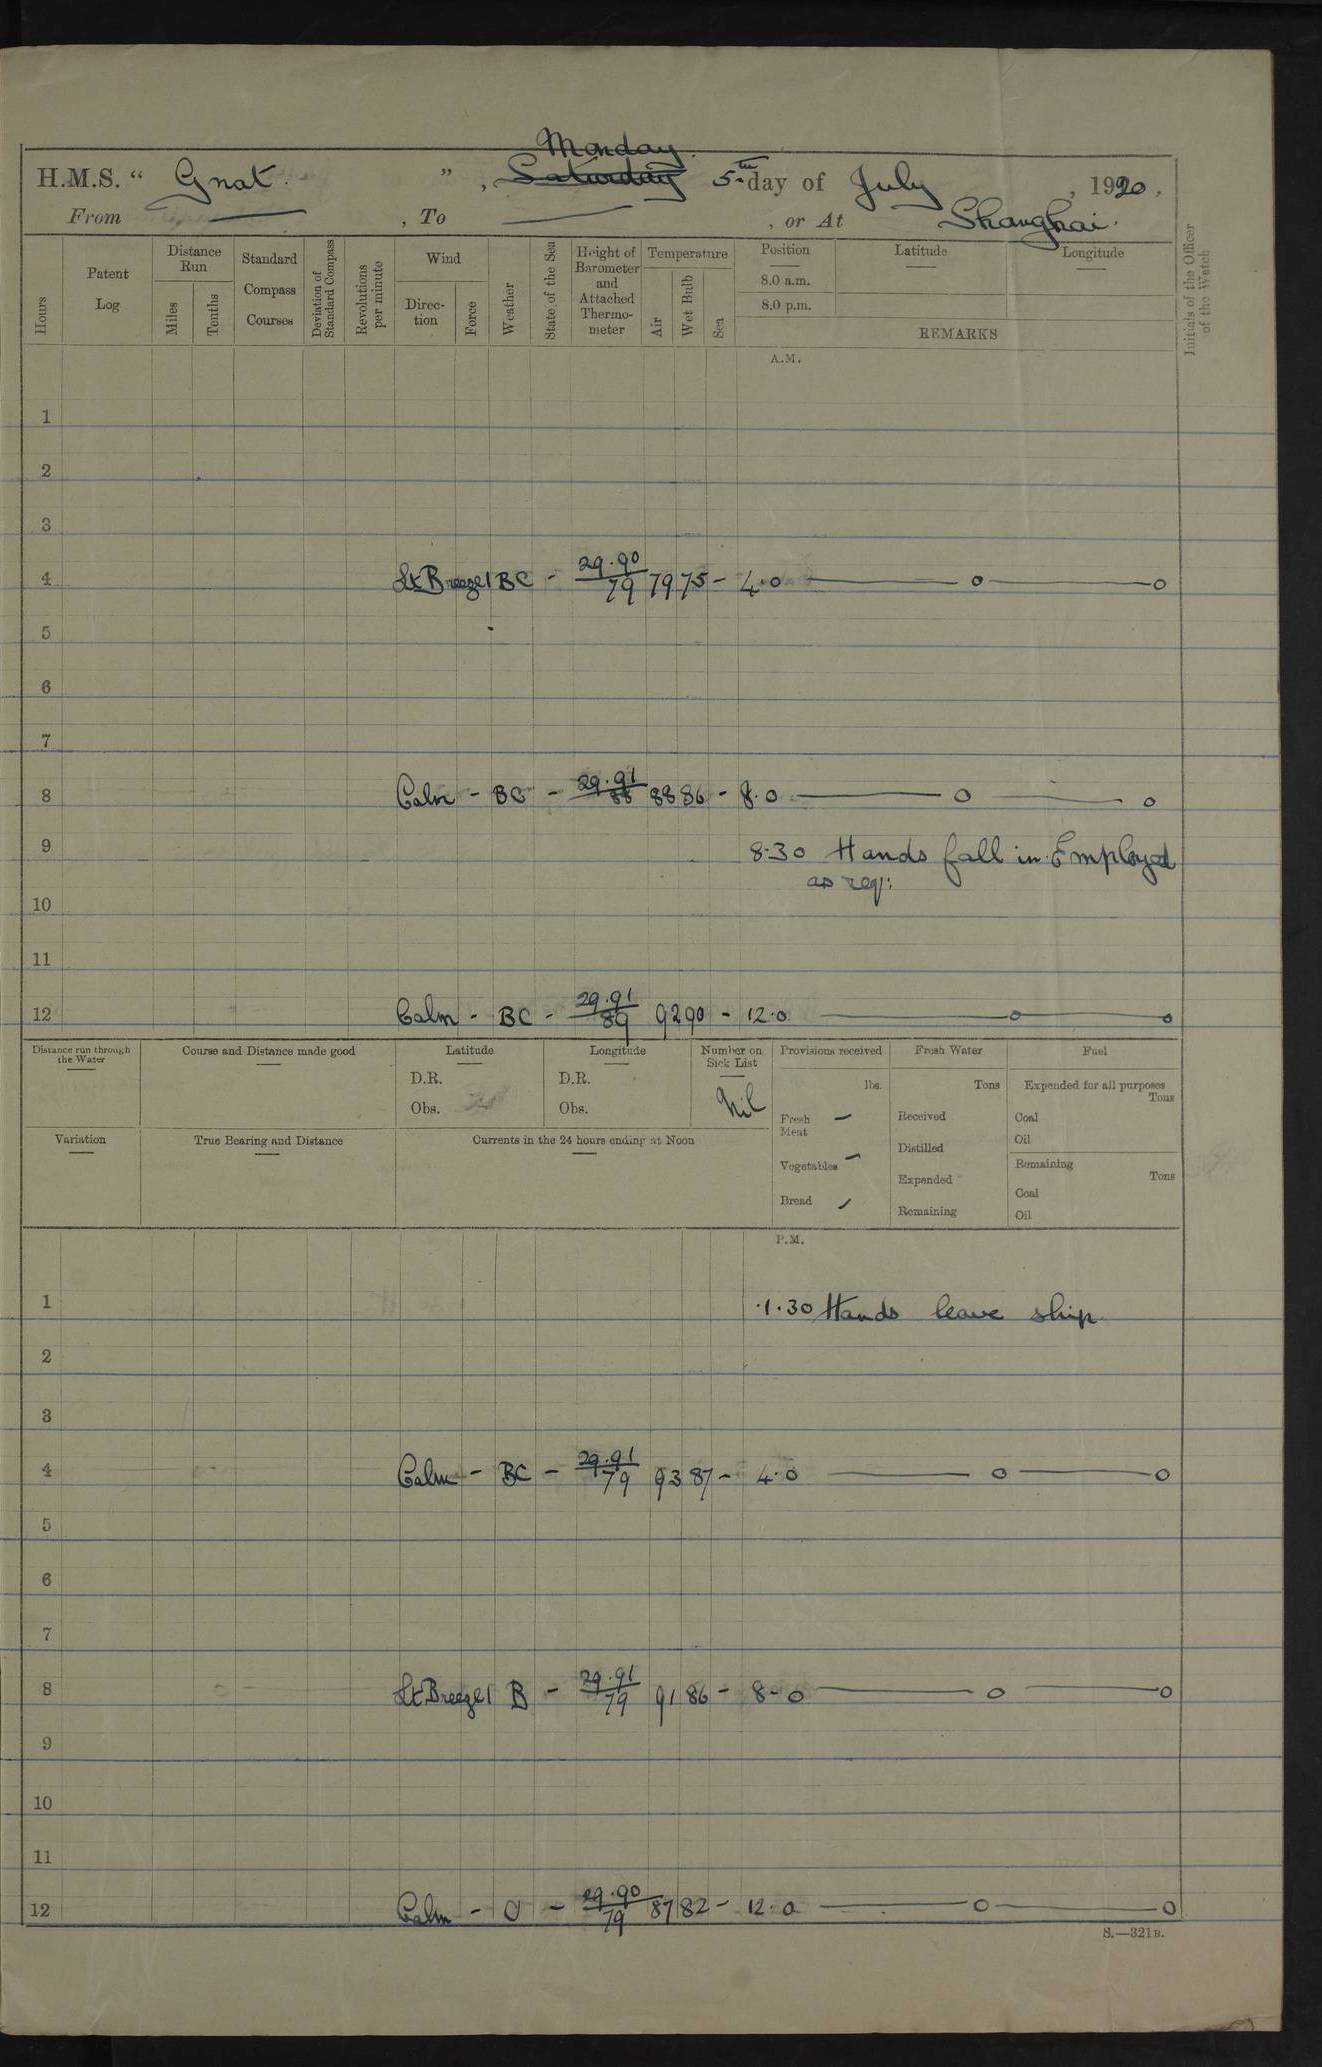 Monday
H.M.S. “ Gnat. ” , Saturday 5th day of July , 1920 ,
From — , To — , or At Shanghai.
Hours
Patent Log
Distance Run
Miles
Tenths
Standard Compass Courses
Deviation of Standard Compass
Revolutions per minute
Wind
Direc-tion
Force
Weather
State of the Sea
Height of Barometer and Attached Thermo-meter
Temperature
Air
Wet Bulb
Sea
Position
8.0 a.m.
8.0 p.m.
Latitude
Longitude
REMARKS
Initials of the Officer of the Watch
A.M.
1
2
3
4 Lt Breeze 1 BC - 29.90 / 79 79 75 - 4.0 — o — o
5
6
7
8 Calm - BC - 29.91 / 88 88 86 - 8.0 — o — o
9 8.30 Hands fall in. Employed
as req:
10
11
12 Calm - BC - 29.91 / 89 92 90 - 12.0 — o — o
Distance run through the Water
Course and Distance made good
Latitude
D.R.
Obs.
Longitude
D.R.
Obs.
Number on Sick List
Nil
Variation
True Bearing and Distance
Currents in the 24 hours ending at Noon
Provisions received
lbs.
Fresh Meat —
Vegetables —
Bread —
Fresh Water
Tons
Received
Distilled
Expended
Remaining
Fuel
Expended for all purposes
Tons
Coal
Oil
Remaining
Tons
Coal
Oil
P.M.
1 1.30 Hands leave ship.
2
3
4 Calm - BC - 29.91 / 79 93 87 - 4.0 — o — o
5
6
7
8 Lt Breeze 1 B - 29.91 / 79 91 86 - 8-0 — o — o
9
10
11
12 Calm - O - 29.90 / 79 87 82 - 12.0 — o — o
S.—321B.